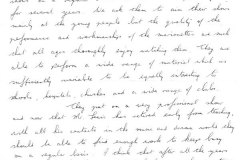 for several years. We ask them to aim their show
mainly at the young people but the quality of the
performance and workmanship of the marionettes are such
that all ages thoroughly enjoy watching them. They are
able to perform a wide range of material which is
sufficiently variable to be equally interesting to
schools, hospitals, churches and a wide range of clubs.
They put on a very professional show
and now that has retired early from teaching,
with all the contacts in the music and drama world they
should be able to find enough work to keep them
on a regular basis. I think that after all the years